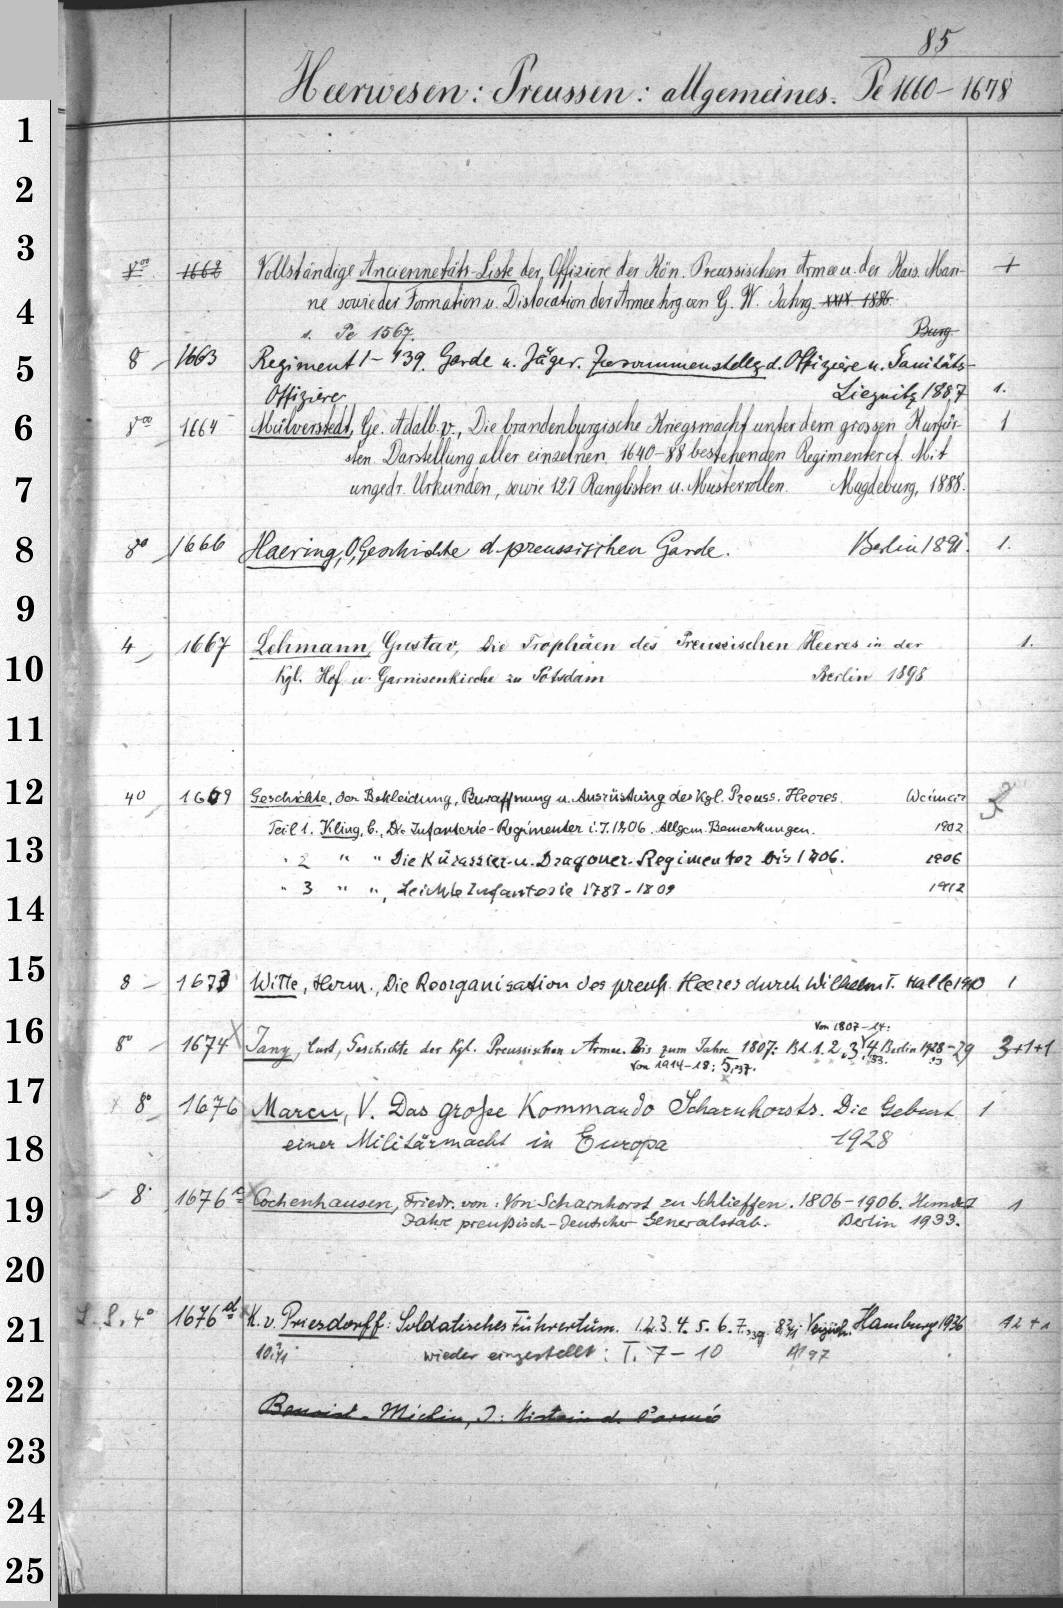 85
Heerwesen: Preussen: allgemeines. Pe 1660–1678
1
2
3
8vo 1662 Vollständige Anciennetäts-Liste der Offiziere der Kön. Preussischen Armee u. der Kais. Mari-
ne sowie der Formation u. Dislocation der Armee hrg. von G. W. Jahrg. XXIX 1886.
4
s. Pe 1567. Burg
5
8 1663 Regiment 1–139. Garde u. Jäger. Zusammenstellg d. Offiziere u. Sanitäts-
Offiziere. Liegnitz 1887 1.
6
8vo 1664 Mülverstedt, Ge. Adalb. v., Die brandenburgische Kriegsmacht unter dem grossen Kurfür- 1
sten. Darstellung aller einzelnen, 1640–88 bestehenden Regimenter ct. Mit
7
ungedr. Urkunden, sowie 127 Ranglisten u. Musterrollen. Magdeburg, 1888.
8
8o 1666 Haering, O, Geschichte d. preussischen Garde. Berlin 1891. 1.
9
4 1667 Lehmann, Gustav, Die Trophäen des Preussischen Heeres in der 1.
10
Kgl. Hof u. Garnisonkirche zu Potsdam Berlin 1898
11
12
40 1669 Geschichte der Bekleidung, Bewaffnung u. Ausrüstung des Kgl. Preuss. Heeres. Weimar 3
Teil 1. Kling, C., Die Infanterie-Regimenter i. J. 1806. Allgem. Bemerkungen. 1902
13
" 2 " " Die Kürassier- u. Dragoner-Regimenter bis 1806. 1906
" 3 " ", Leichte Infanterie 1787–1809 1912
14
15
8 – 1673 Witte, Herm., Die Reorganisation des preuß. Heeres durch Wilhelm I. Halle 1910 1
16
von 1807–14:
8o 1674 Jany, Curt, Geschichte der Kgl. Preussischen Armee. Bis zum Jahre 1807: Bd. 1. 2. 3. 4 Berlin 1928–29 3+1+1
von 1914–18: 5, 37. 33.
17
8o 1676 Marcu, V. Das große Kommando Scharnhorsts. Die Geburt 1
18
einer Militärmacht in Europa 1928
19
8. 1676c Cochenhausen, Friedr. von: Von Scharnhorst zu Schlieffen. 1806–1906. Hundert 1
Jahre preußisch-deutscher Generalstab. Berlin 1933.
20
21
L. S. 4o 1676d K. v. Priesdorff: Soldatisches Führertum. 1.2.3.4.5.6.7. Hamburg 1936 12+1
wieder eingestellt: I. 7–10
22
Benoist-Méchin, J: Histoire d. l'armée
23
24
25